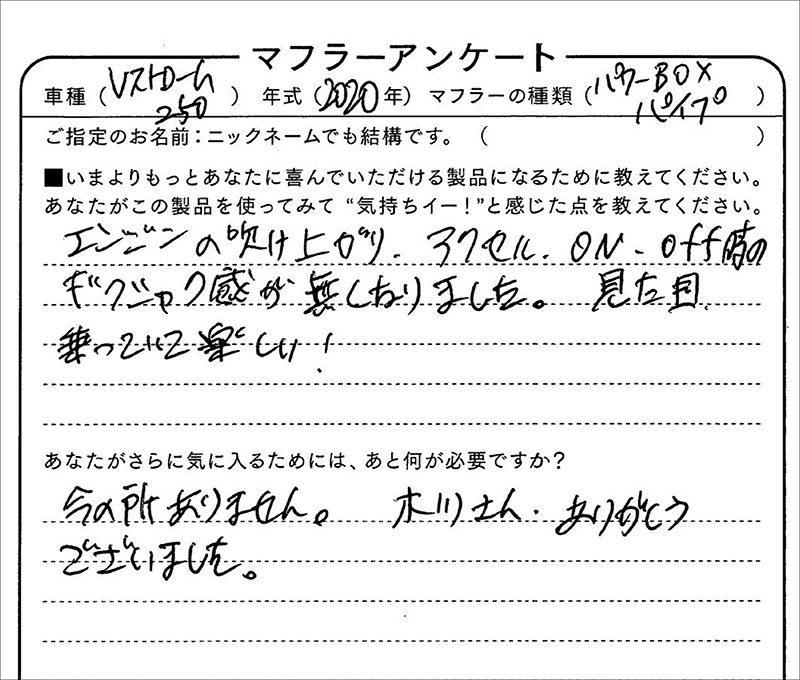 マフラーアンケート
車種（Vストローム 250）　年式（2020年）　マフラーの種類（パワーBOX パイプ）
ご指定のお名前：ニックネームでも結構です。（　　　）
■いまよりもっとあなたに喜んでいただける製品になるために教えてください。
あなたがこの製品を使ってみて “気持ちイー！”と感じた点を教えてください。
エンジンの吹け上がり、アクセル、ON、Off時の
ギクシャク感が無くなりました。見た目
乗っていて楽しい！
あなたがさらに気に入るためには、あと何が必要ですか？
今の所ありません。木川さん、ありがとう
ございました。